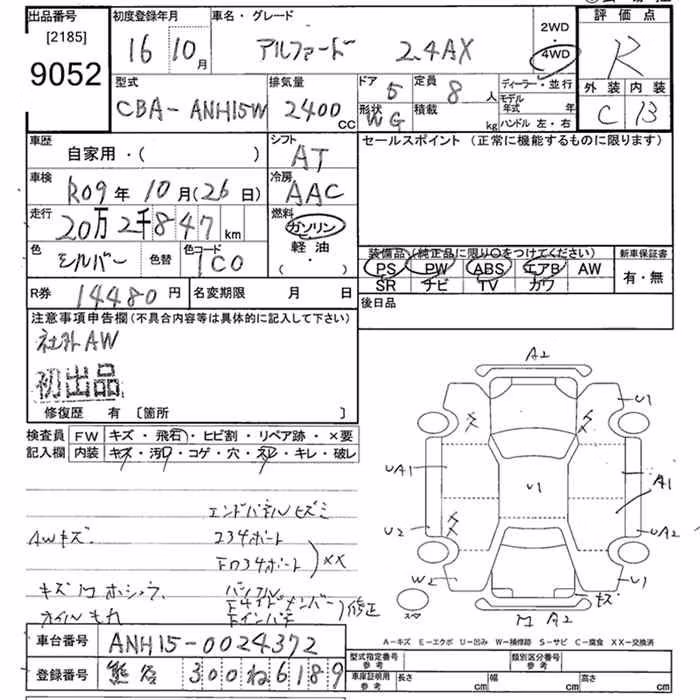 出品番号 初度登録年月 車名・グレード 2WD ・ 4WD 評価点
[2185]
9052
16 10月 アルファード 2.4AX R
型式 排気量 ドア 5 定員 8人 ディーラー・並行 外装 内装
CBA-ANH15W 2400CC 形状 WG 積載 kg モデル年式 年 C B
ハンドル 左・右
車歴 シフト セールスポイント (正常に機能するものに限ります)
自家用・( ) AT
車検 R09年10月(26日) 冷房 AAC
走行 20万2千847km 燃料 ガソリン
軽油
( ・ )
色 シルバー 色替 色コード 1C0
装備品(純正品に限り○をつけてください) 新車保証書
PS PW ABS エアB AW 有・無
SR ナビ TV カワ
R券 14480円 名変期限 月 日 後日品
注意事項申告欄(不具合内容等は具体的に記入して下さい)
社外AW
初出品
修復歴 有 [箇所 ]
検査員 FW キズ・飛石・ヒビ割・リペア跡・×要
記入欄 内装 キズ・汚レ・コゲ・穴・スレ・キレ・破レ
A2
U1
UA1 U1 A1
U2 UA2
W2 U1
スペア M A2 キズ
エンドパネルヒズミ
AWキズ 234ボート
F034ボート ××
キズ M ホショウ バックパネル
オイルもれ Fサイドメンバー 修正
Fインパネ
A-キズ E-エクボ U-凹み W-補修跡 S-サビ C-腐食 XX-交換済
車台番号 ANH15-0024372
登録番号 熊谷 300 ね 6189
型式指定番号 参考 類別区分番号 参考
車庫証明用 参考 長さ cm 幅 cm 高さ cm